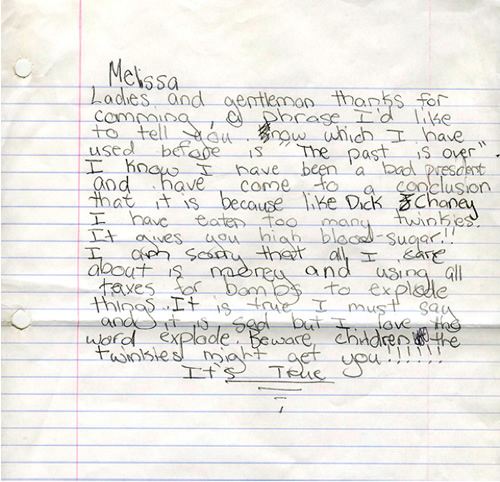 Melissa
Ladies and gentleman thanks for
comming, a phrase I'd like
to tell you now which I have
used before is "The past is over".
I know I have been a bad presdent
and have come to a conclusion
that it is because like Dick Chaney
I have eaten too many twinkies.
It gives you high blood-sugar!!
I am sorry that all I care
about is money and using all
taxes for bombs to explode
things. It is true I must say
and it is sad but I love the
word explode. Beware children the
twinkies might get you!!!!!!
It's True